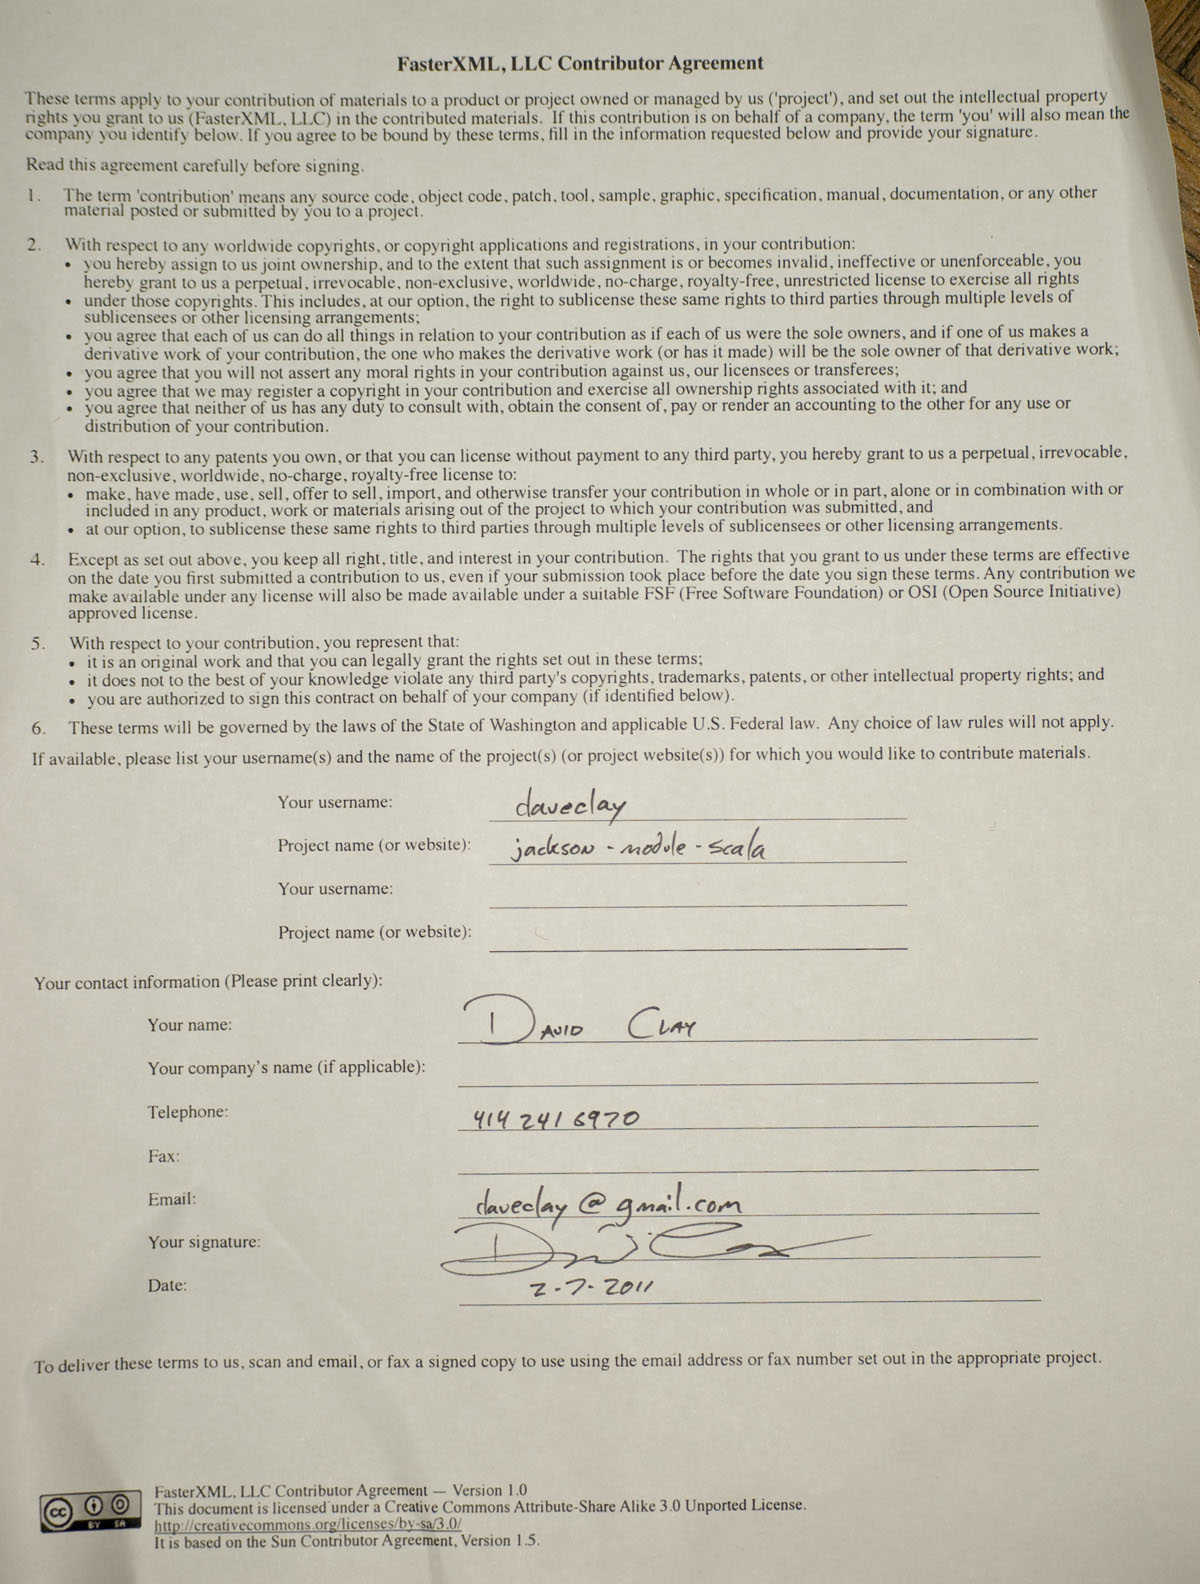 FasterXML, LLC Contributor Agreement
These terms apply to your contribution of materials to a product or project owned or managed by us ('project'), and set out the intellectual property
rights you grant to us (FasterXML, LLC) in the contributed materials. If this contribution is on behalf of a company, the term 'you' will also mean the
company you identify below. If you agree to be bound by these terms, fill in the information requested below and provide your signature.
Read this agreement carefully before signing.
1. The term 'contribution' means any source code, object code, patch, tool, sample, graphic, specification, manual, documentation, or any other
material posted or submitted by you to a project.
2. With respect to any worldwide copyrights, or copyright applications and registrations, in your contribution:
• you hereby assign to us joint ownership, and to the extent that such assignment is or becomes invalid, ineffective or unenforceable, you
hereby grant to us a perpetual, irrevocable, non-exclusive, worldwide, no-charge, royalty-free, unrestricted license to exercise all rights
• under those copyrights. This includes, at our option, the right to sublicense these same rights to third parties through multiple levels of
sublicensees or other licensing arrangements;
• you agree that each of us can do all things in relation to your contribution as if each of us were the sole owners, and if one of us makes a
derivative work of your contribution, the one who makes the derivative work (or has it made) will be the sole owner of that derivative work;
• you agree that you will not assert any moral rights in your contribution against us, our licensees or transferees;
• you agree that we may register a copyright in your contribution and exercise all ownership rights associated with it; and
• you agree that neither of us has any duty to consult with, obtain the consent of, pay or render an accounting to the other for any use or
distribution of your contribution.
3. With respect to any patents you own, or that you can license without payment to any third party, you hereby grant to us a perpetual, irrevocable,
non-exclusive, worldwide, no-charge, royalty-free license to:
• make, have made, use, sell, offer to sell, import, and otherwise transfer your contribution in whole or in part, alone or in combination with or
included in any product, work or materials arising out of the project to which your contribution was submitted, and
• at our option, to sublicense these same rights to third parties through multiple levels of sublicensees or other licensing arrangements.
4. Except as set out above, you keep all right, title, and interest in your contribution. The rights that you grant to us under these terms are effective
on the date you first submitted a contribution to us, even if your submission took place before the date you sign these terms. Any contribution we
make available under any license will also be made available under a suitable FSF (Free Software Foundation) or OSI (Open Source Initiative)
approved license.
5. With respect to your contribution, you represent that:
• it is an original work and that you can legally grant the rights set out in these terms;
• it does not to the best of your knowledge violate any third party's copyrights, trademarks, patents, or other intellectual property rights; and
• you are authorized to sign this contract on behalf of your company (if identified below).
6. These terms will be governed by the laws of the State of Washington and applicable U.S. Federal law. Any choice of law rules will not apply.
If available, please list your username(s) and the name of the project(s) (or project website(s)) for which you would like to contribute materials.
Your username: daveclay
Project name (or website): jackson-module-scala
Your username:
Project name (or website):
Your contact information (Please print clearly):
Your name: David Clay
Your company's name (if applicable):
Telephone: 414 241 6970
Fax:
Email: daveclay@gmail.com
Your signature:
Date: 2-7-2011
To deliver these terms to us, scan and email, or fax a signed copy to use using the email address or fax number set out in the appropriate project.
cc BY SA
FasterXML, LLC Contributor Agreement — Version 1.0
This document is licensed under a Creative Commons Attribute-Share Alike 3.0 Unported License.
http://creativecommons.org/licenses/by-sa/3.0/
It is based on the Sun Contributor Agreement, Version 1.5.